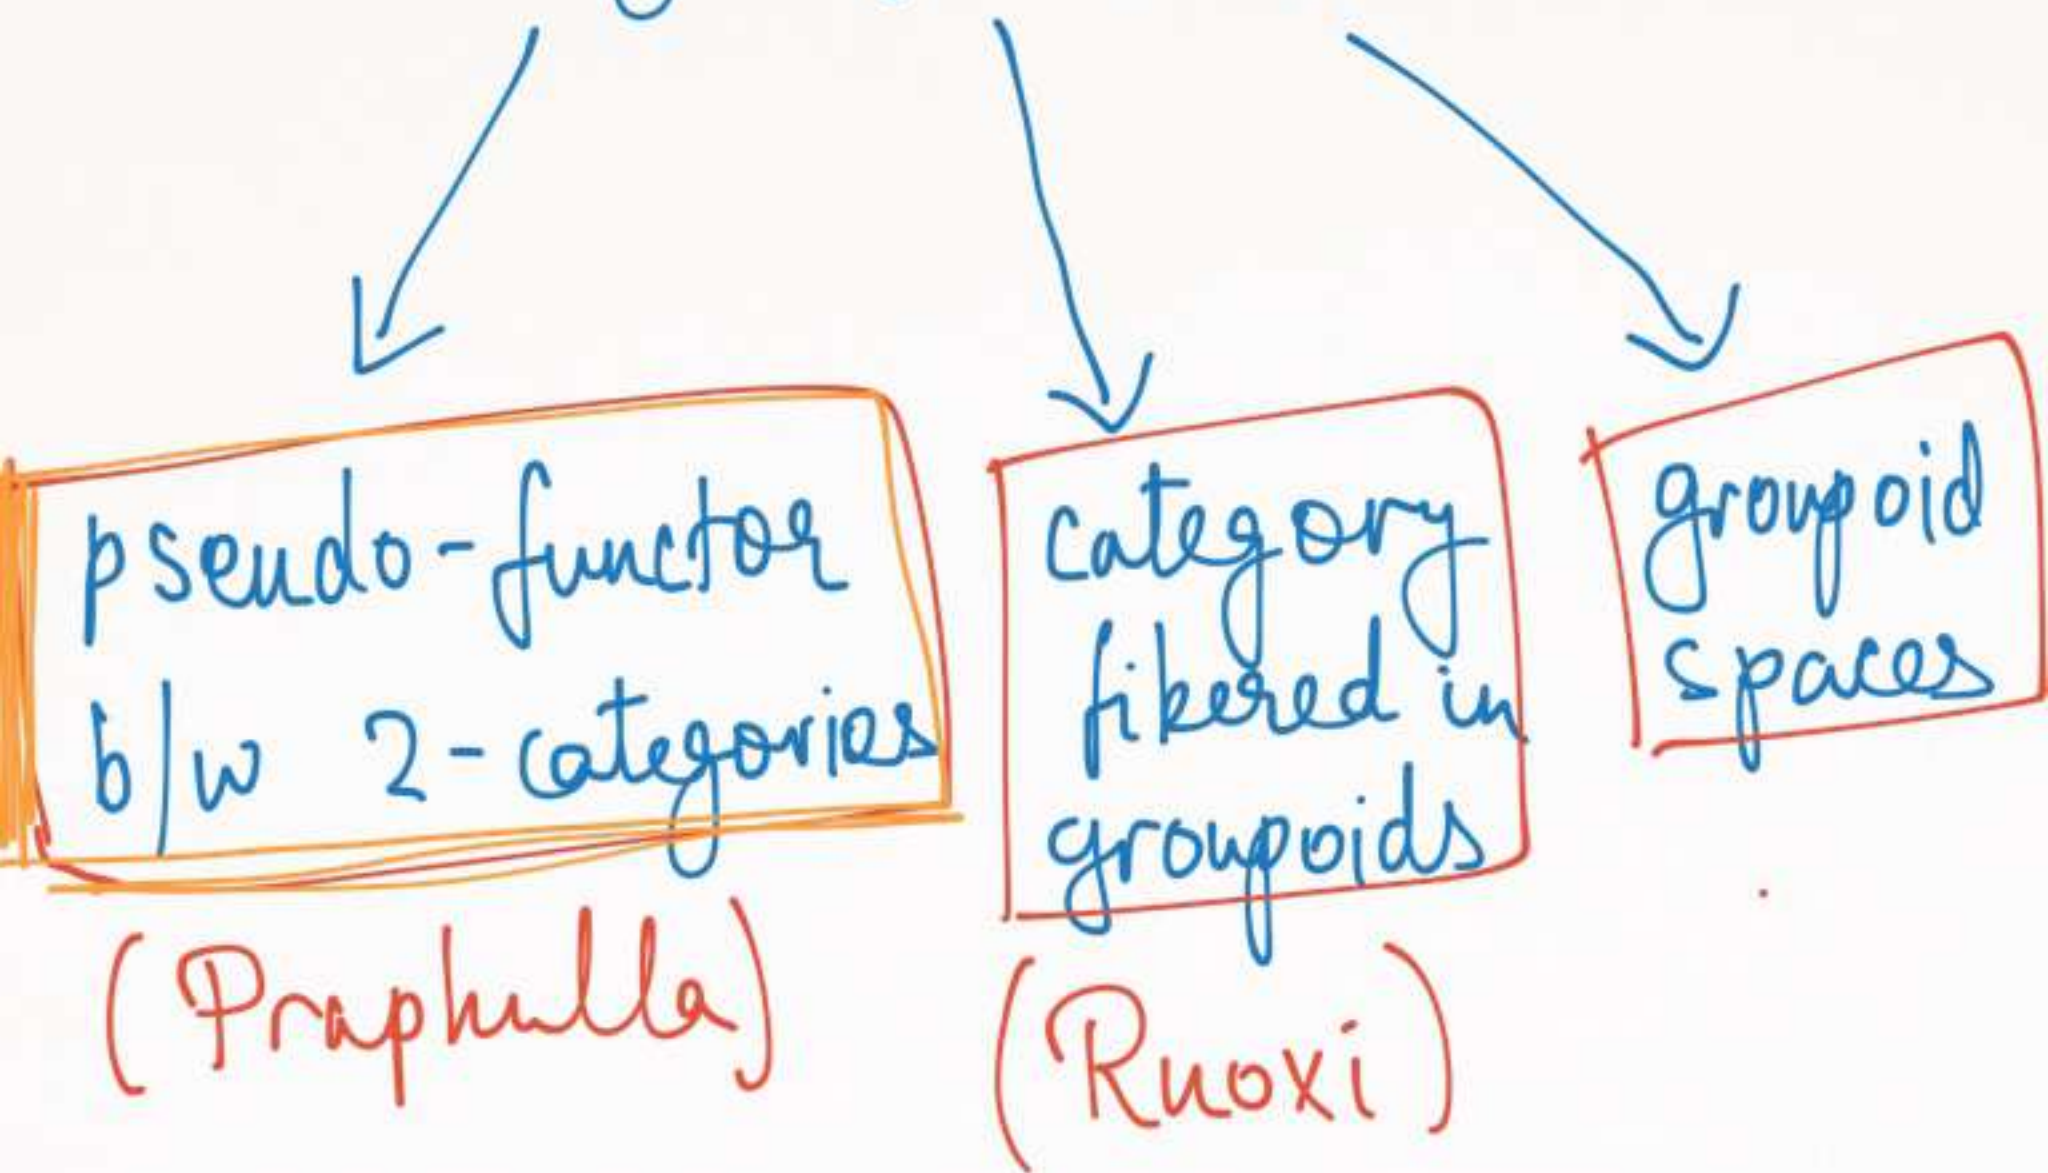 pseudo-functor
b/w 2-categories
(Praphulla)
category
fibered in
groupoids
(Ruoxi)
groupoid
spaces